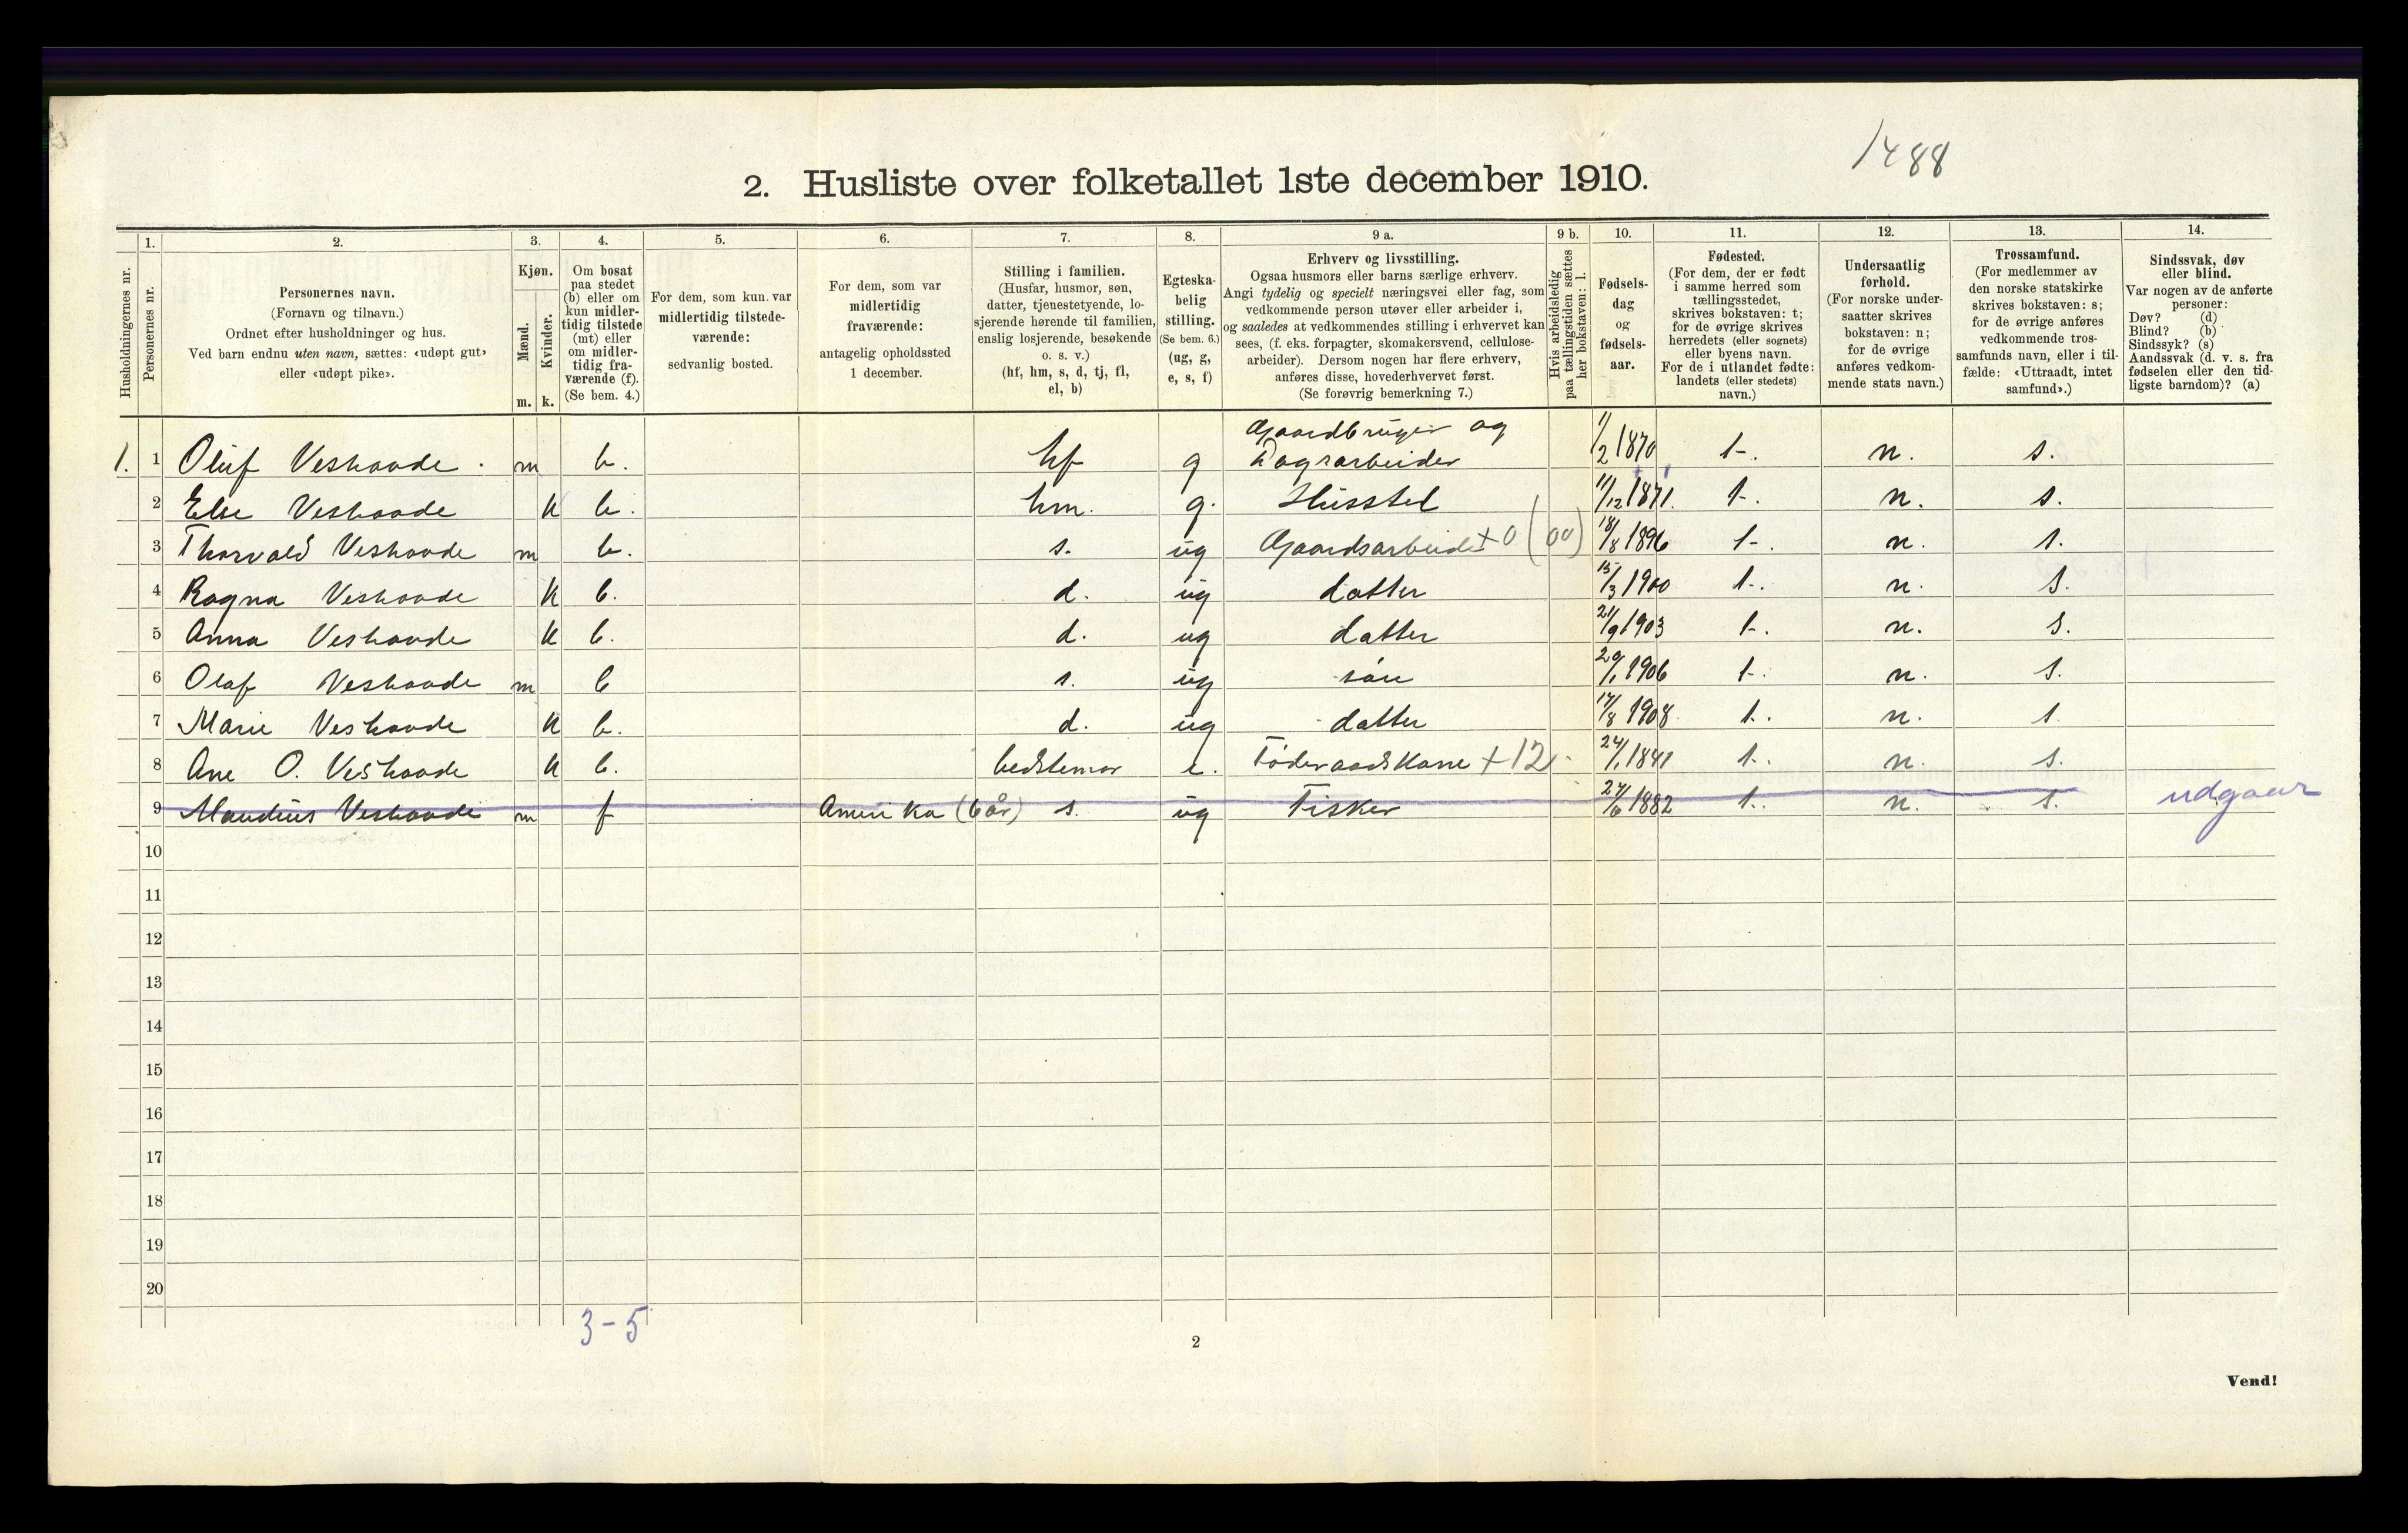 1488
2. Husliste over folketallet 1ste december 1910.
Husholdningernes nr.
1. Personernes nr.
2. Personernes navn.
(Fornavn og tilnavn.)
Ordnet efter husholdninger og hus.
Ved barn endnu uten navn, sættes: «udøpt gut»
eller «udøpt pike».
3. Kjøn.
Mænd. m.
Kvinder. k.
4. Om bosat
paa stedet
(b) eller om
kun midler-
tidig tilstede
(mt) eller
om midler-
tidig fra-
værende (f).
(Se bem. 4.)
5. For dem, som kun var
midlertidig tilstede-
værende:
sedvanlig bosted.
6. For dem, som var
midlertidig
fraværende:
antagelig opholdssted
1 december.
7. Stilling i familien.
(Husfar, husmor, søn,
datter, tjenestetyende, lo-
sjerende hørende til familien,
enslig losjerende, besøkende
o. s. v.)
(hf, hm, s, d, tj, fl,
el, b)
8. Egteska-
belig
stilling.
(Se bem. 6.)
(ug, g,
e, s, f)
9 a. Erhverv og livsstilling.
Ogsaa husmors eller barns særlige erhverv.
Angi tydelig og specielt næringsvei eller fag, som
vedkommende person utøver eller arbeider i,
og saaledes at vedkommendes stilling i erhvervet kan
sees, (f. eks. forpagter, skomakersvend, cellulose-
arbeider). Dersom nogen har flere erhverv,
anføres disse, hovederhvervet først.
(Se forøvrig bemerkning 7.)
9 b. Hvis arbeidsledig
paa tællingstiden sættes
her bokstaven: l.
10. Fødsels-
dag
og
fødsels-
aar.
11. Fødested.
(For dem, der er født
i samme herred som
tællingsstedet,
skrives bokstaven: t;
for de øvrige skrives
herredets (eller sognets)
eller byens navn.
For de i utlandet fødte:
landets (eller stedets)
navn.)
12. Undersaatlig
forhold.
(For norske under-
saatter skrives
bokstaven: n;
for de øvrige
anføres vedkom-
mende stats navn.)
13. Trossamfund.
(For medlemmer av
den norske statskirke
skrives bokstaven: s;
for de øvrige anføres
vedkommende tros-
samfunds navn, eller i til-
fælde: «Uttraadt, intet
samfund».)
14. Sindssvak, døv
eller blind.
Var nogen av de anførte
personer:
Døv? (d)
Blind? (b)
Sindssyk? (s)
Aandssvak (d. v. s. fra
fødselen eller den tid-
ligste barndom)? (a)
1. 1 Oluf Veshovde. m b. hf g Gaardbruger og Dagsarbeider 1/2 1870 t. n. s.
2 Else Veshovde k b. hm. g. Husstel 11/12 1871. t. n. s.
3 Thorvald Veshovde m b. s. ug Gaardsarbeide +0 (00) 18/8 1896 t. n. s.
4 Ragna Veshovde k b. d. ug datter 15/3 1900 t. n. s.
5 Anna Veshovde k b. d. ug datter 21/9 1903 t. n. s.
6 Olaf Veshovde m b s. ug søn 29/1 1906 t. n. s.
7 Marie Veshovde k b. d. ug datter 17/8 1908 t. n. s.
8 Ane O. Veshovde k b. bedstemor e. Føderaadskone +12 24/1 1841 t. n. s.
9 Mandius Veshovde m f Amerika (6 år) s. ug Fisker 27/6 1882 t. n. s. udgaar
10
11
12
13
14
15
16
17
18
19
20
3-5
2
Vend!